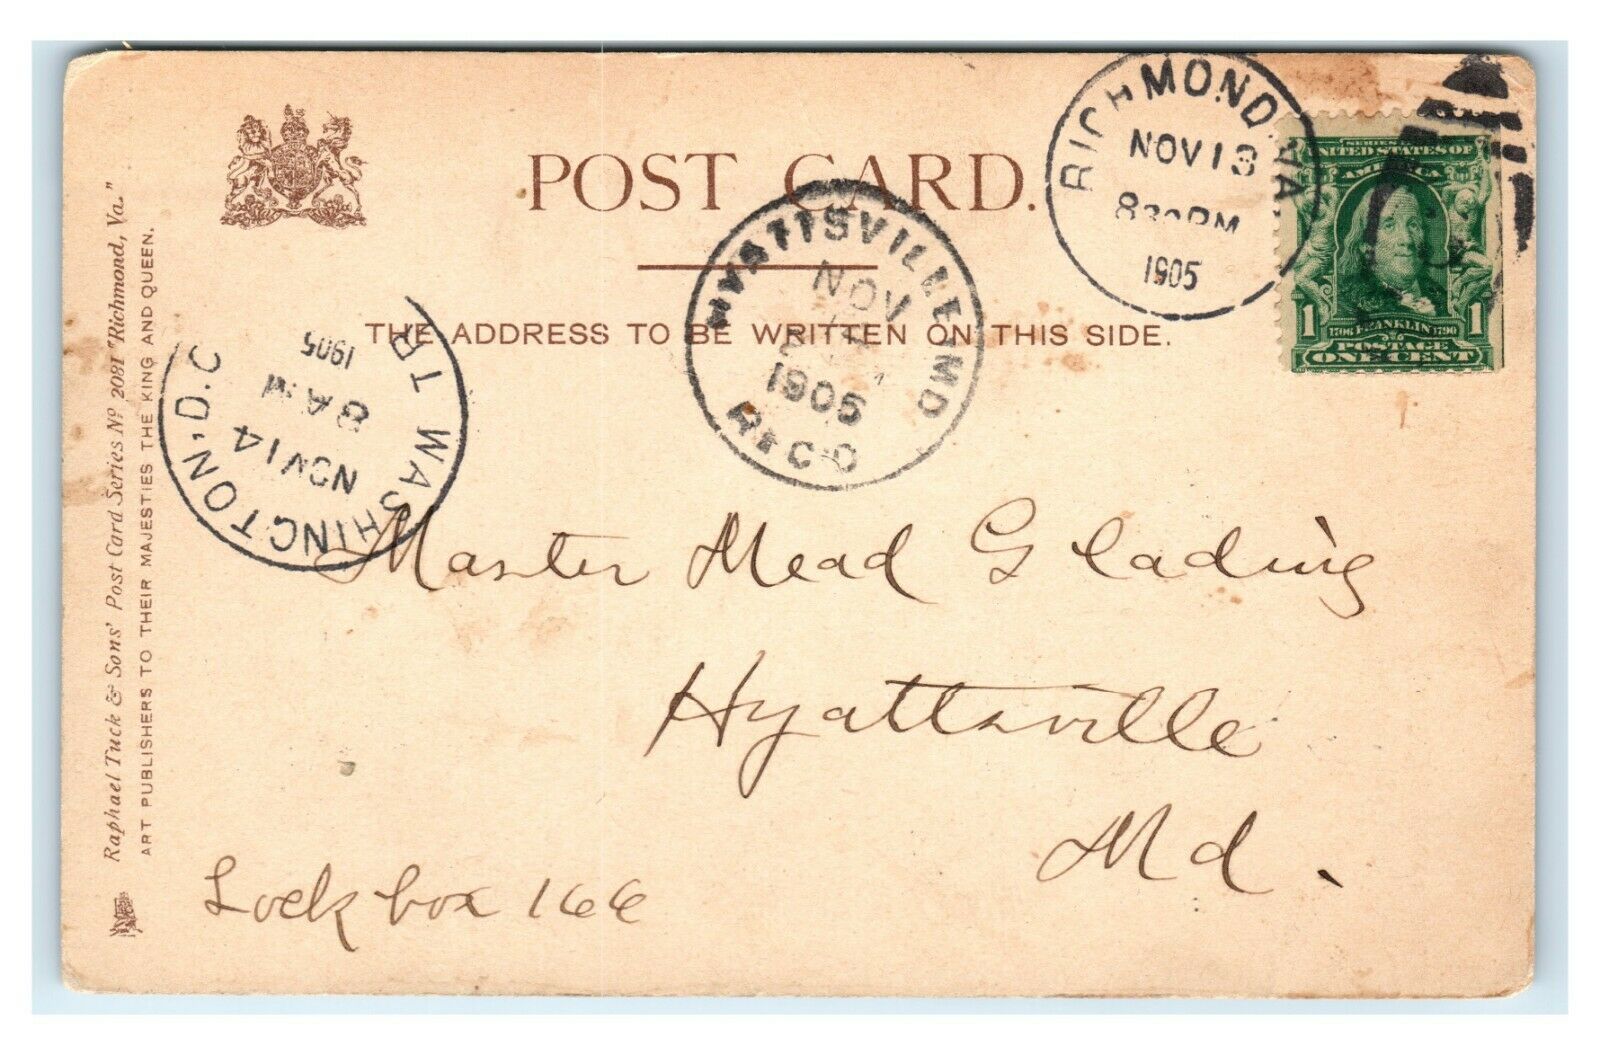 POST CARD.
THE ADDRESS TO BE WRITTEN ON THIS SIDE.
RICHMOND, VA.
NOV 13
830 PM
1905
SERIES
UNITED STATES OF
AMERICA
1 1706 FRANKLIN 1790 1
POSTAGE
ONE CENT
HYATTSVILLE, MD
NOV
1905
REC'D
WASHINGTON, D.C.
NOV 14
8 AM
1905
Master Mead Glading
Hyattsville
Md.
Lock box 166
Raphael Tuck & Sons' Post Card Series Nº 2081 "Richmond, Va."
ART PUBLISHERS TO THEIR MAJESTIES THE KING AND QUEEN.